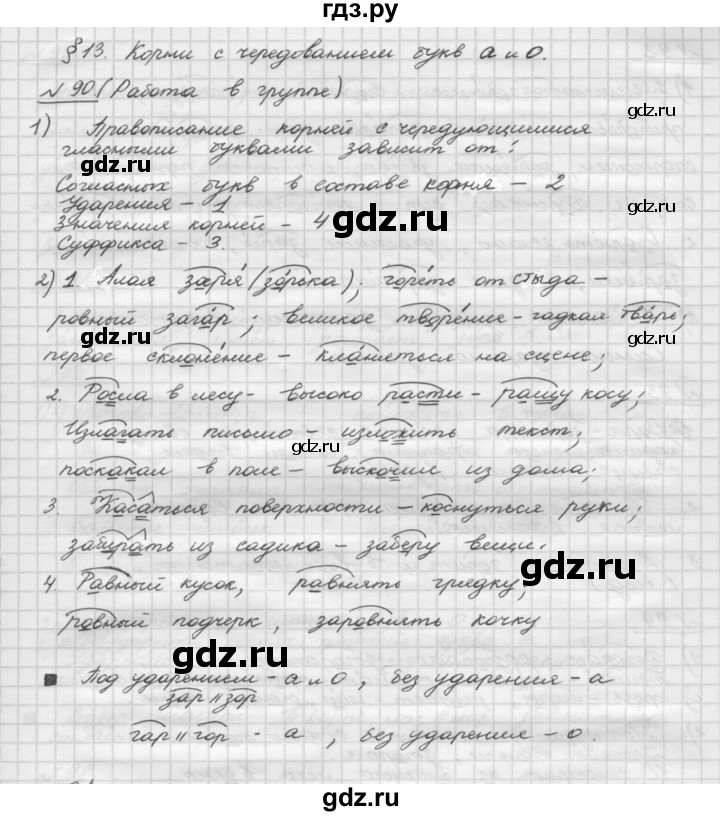 гдз.ру
§ 13. Корни с чередованием букв а и о.
№ 90. (Работа в группе)
1) Правописание корней с чередующимися
гласными буквами зависит от:
Согласных букв в составе корня – 2
Ударения – 1
Значения корней – 4
Суффикса – 3.
2) 1. Алая заря (зорька); гореть от стыда –
ровный загар; великое творение – гадкая тварь;
первое склонение – кланяться на сцене;
2. Росла в лесу – высоко расти – ращу косу;
Излагать письмо – изложить текст;
поскакал в поле – выскочил из дома;
3. Касаться поверхности – коснуться руки;
забирать из садика – заберу вещи.
4. Равный кусок, равнять грядку,
ровный подчерк, заровнять кочку
Под ударением – а и о, без ударения – а
зар || зор
гар || гор – а, без ударения – о.
gdz.ru
gdz.ru
gdz.ru
gdz.ru
gdz.ru
gdz.ru
gdz.ru
gdz.ru
gdz.ru
gdz.ru
gdz.ru
gdz.ru
gdz.ru